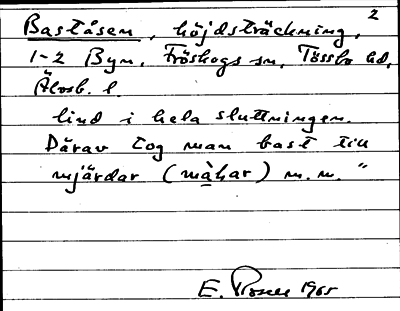 2
Baståsen, höjdsträckning,
1-2 Byn, Fröskogs sn, Tössbo hd,
Älvsb. l.
lind i hela sluttningen.
Därav tog man bast till
mjärdar (måhar) m.m."
E. 1965